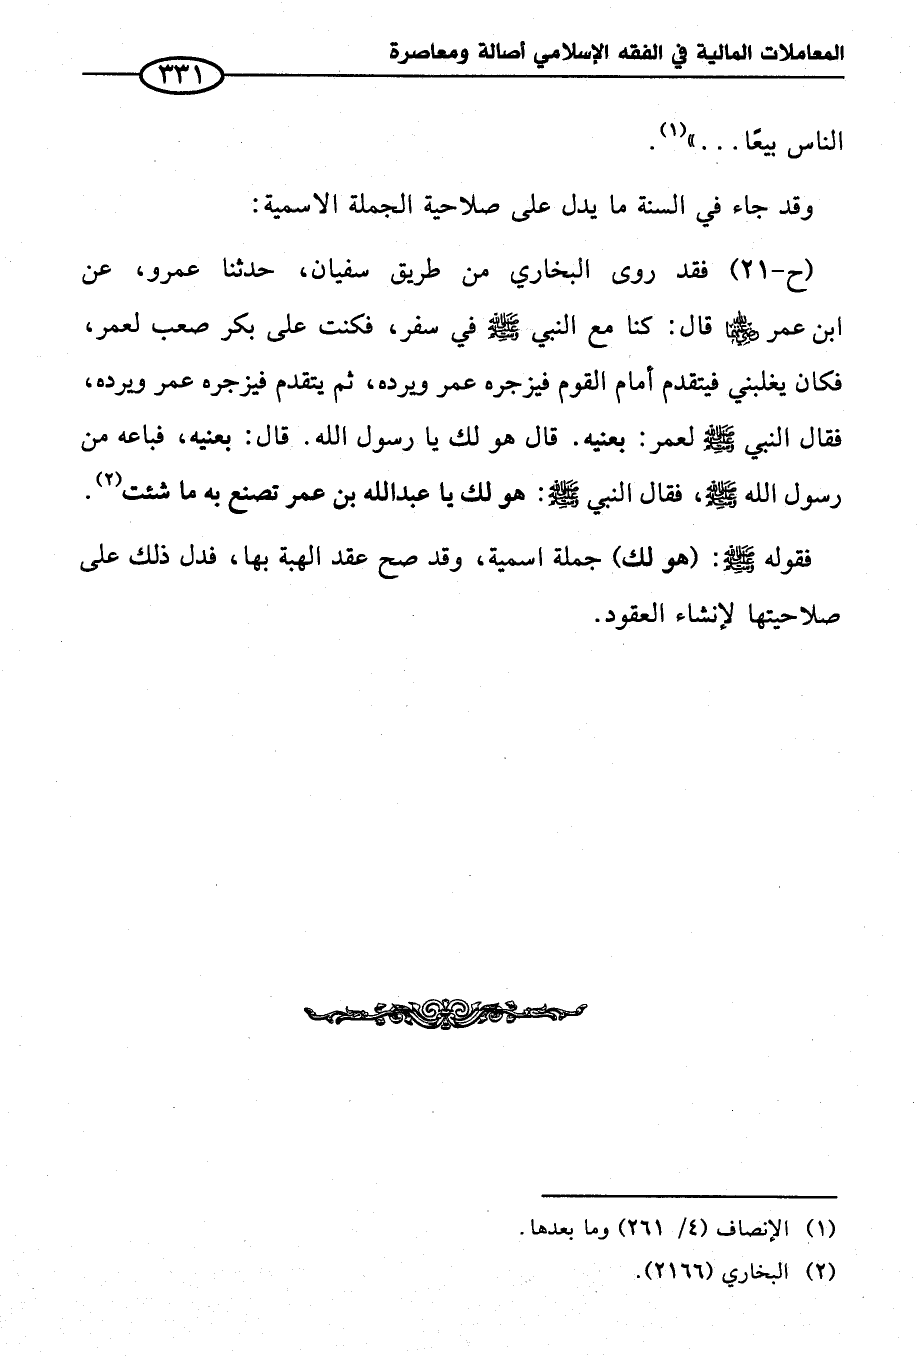 المعاملات المالية في الفقه الإسلامي أصالة ومعاصرة
٣٣١
الناس بيعًا . . .»(١).
وقد جاء في السنة ما يدل على صلاحية الجملة الاسمية:
(ح-٢١) فقد روى البخاري من طريق سفيان، حدثنا عمرو، عن
ابن عمر رضي الله عنهما قال: كنا مع النبي ﷺ في سفر، فكنت على بكر صعب لعمر،
فكان يغلبني فيتقدم أمام القوم فيزجره عمر ويرده، ثم يتقدم فيزجره عمر ويرده،
فقال النبي ﷺ لعمر: بعنيه. قال هو لك يا رسول الله. قال: بعنيه، فباعه من
رسول الله ﷺ، فقال النبي ﷺ: هو لك يا عبدالله بن عمر تصنع به ما شئت(٢).
فقوله ﷺ: (هو لك) جملة اسمية، وقد صح عقد الهبة بها، فدل ذلك على
صلاحيتها لإنشاء العقود.
(١) الإنصاف (٤/ ٢٦١) وما بعدها.
(٢) البخاري (٢١٦٦).